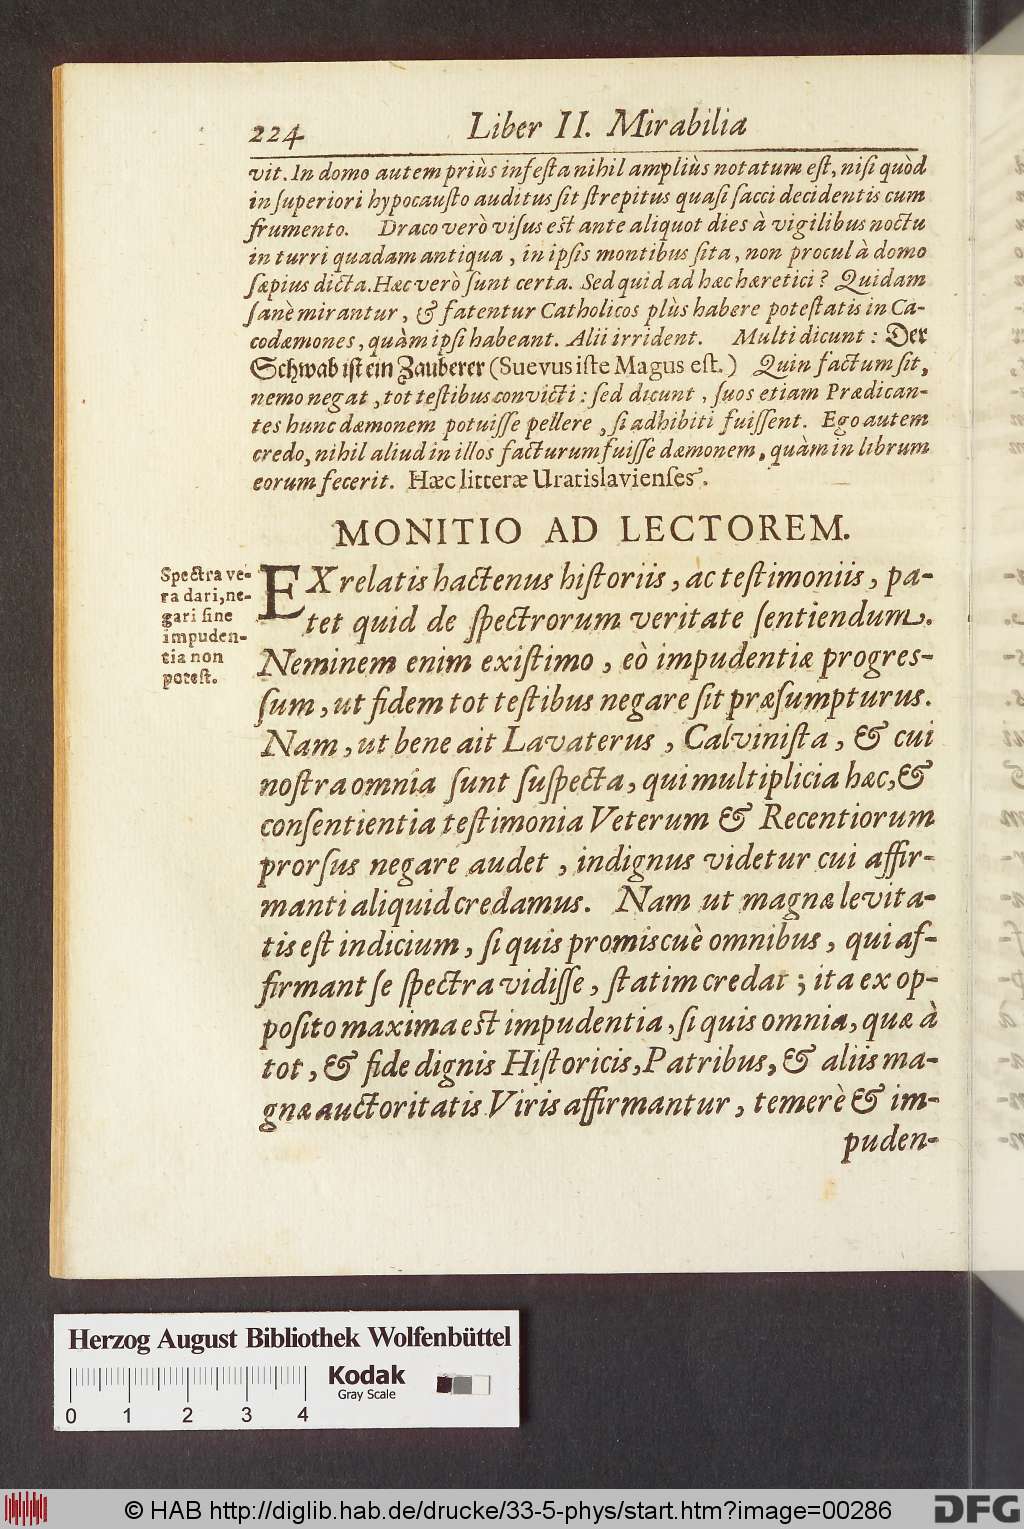 224 Liber II. Mirabilia
vit. In domo autem priùs infesta nihil ampliùs notatum est, nisi quòd
in superiori hypocausto auditus sit strepitus quasi sacci decidentis cum
frumento. Draco verò visus est ante aliquot dies à vigilibus noctu
in turri quadam antiqua, in ipsis montibus sita, non procul à domo
sæpius dicta. Hæc verò sunt certa. Sed quid ad hæc hæretici? Quidam
sanè mirantur, & fatentur Catholicos plùs habere potestatis in Ca-
codæmones, quàm ipsi habeant. Alii irrident. Multi dicunt: Der
Schwab ist ein Zauberer (Suevus iste Magus est.) Quin factum sit,
nemo negat, tot testibus convicti: sed dicunt, suos etiam Prædican-
tes hunc dæmonem potuisse pellere, si adhibiti fuissent. Ego autem
credo, nihil aliud in illos facturum fuisse dæmonem, quàm in librum
eorum fecerit. Hæc litteræ Uratislavienses.
MONITIO AD LECTOREM.
Spectra ve-
ra dari, ne-
gari sine
impuden-
tia non
potest.
EX relatis hactenus historiis, ac testimoniis, pa-
tet quid de spectrorum veritate sentiendum.
Neminem enim existimo, eò impudentiæ progres-
sum, ut fidem tot testibus negare sit præsumpturus.
Nam, ut bene ait Lavaterus, Calvinista, & cui
nostra omnia sunt suspecta, qui multiplicia hæc, &
consentientia testimonia Veterum & Recentiorum
prorsus negare audet, indignus videtur cui affir-
manti aliquid credamus. Nam ut magnæ levita-
tis est indicium, si quis promiscuè omnibus, qui af-
firmant se spectra vidisse, statim credat; ita ex op-
posito maxima est impudentia, si quis omnia, quæ à
tot, & fide dignis Historicis, Patribus, & aliis ma-
gnæ auctoritatis Viris affirmantur, temerè & im-
puden-
Herzog August Bibliothek Wolfenbüttel
Kodak
Gray Scale
0 1 2 3 4
© HAB http://diglib.hab.de/drucke/33-5-phys/start.htm?image=00286
DFG